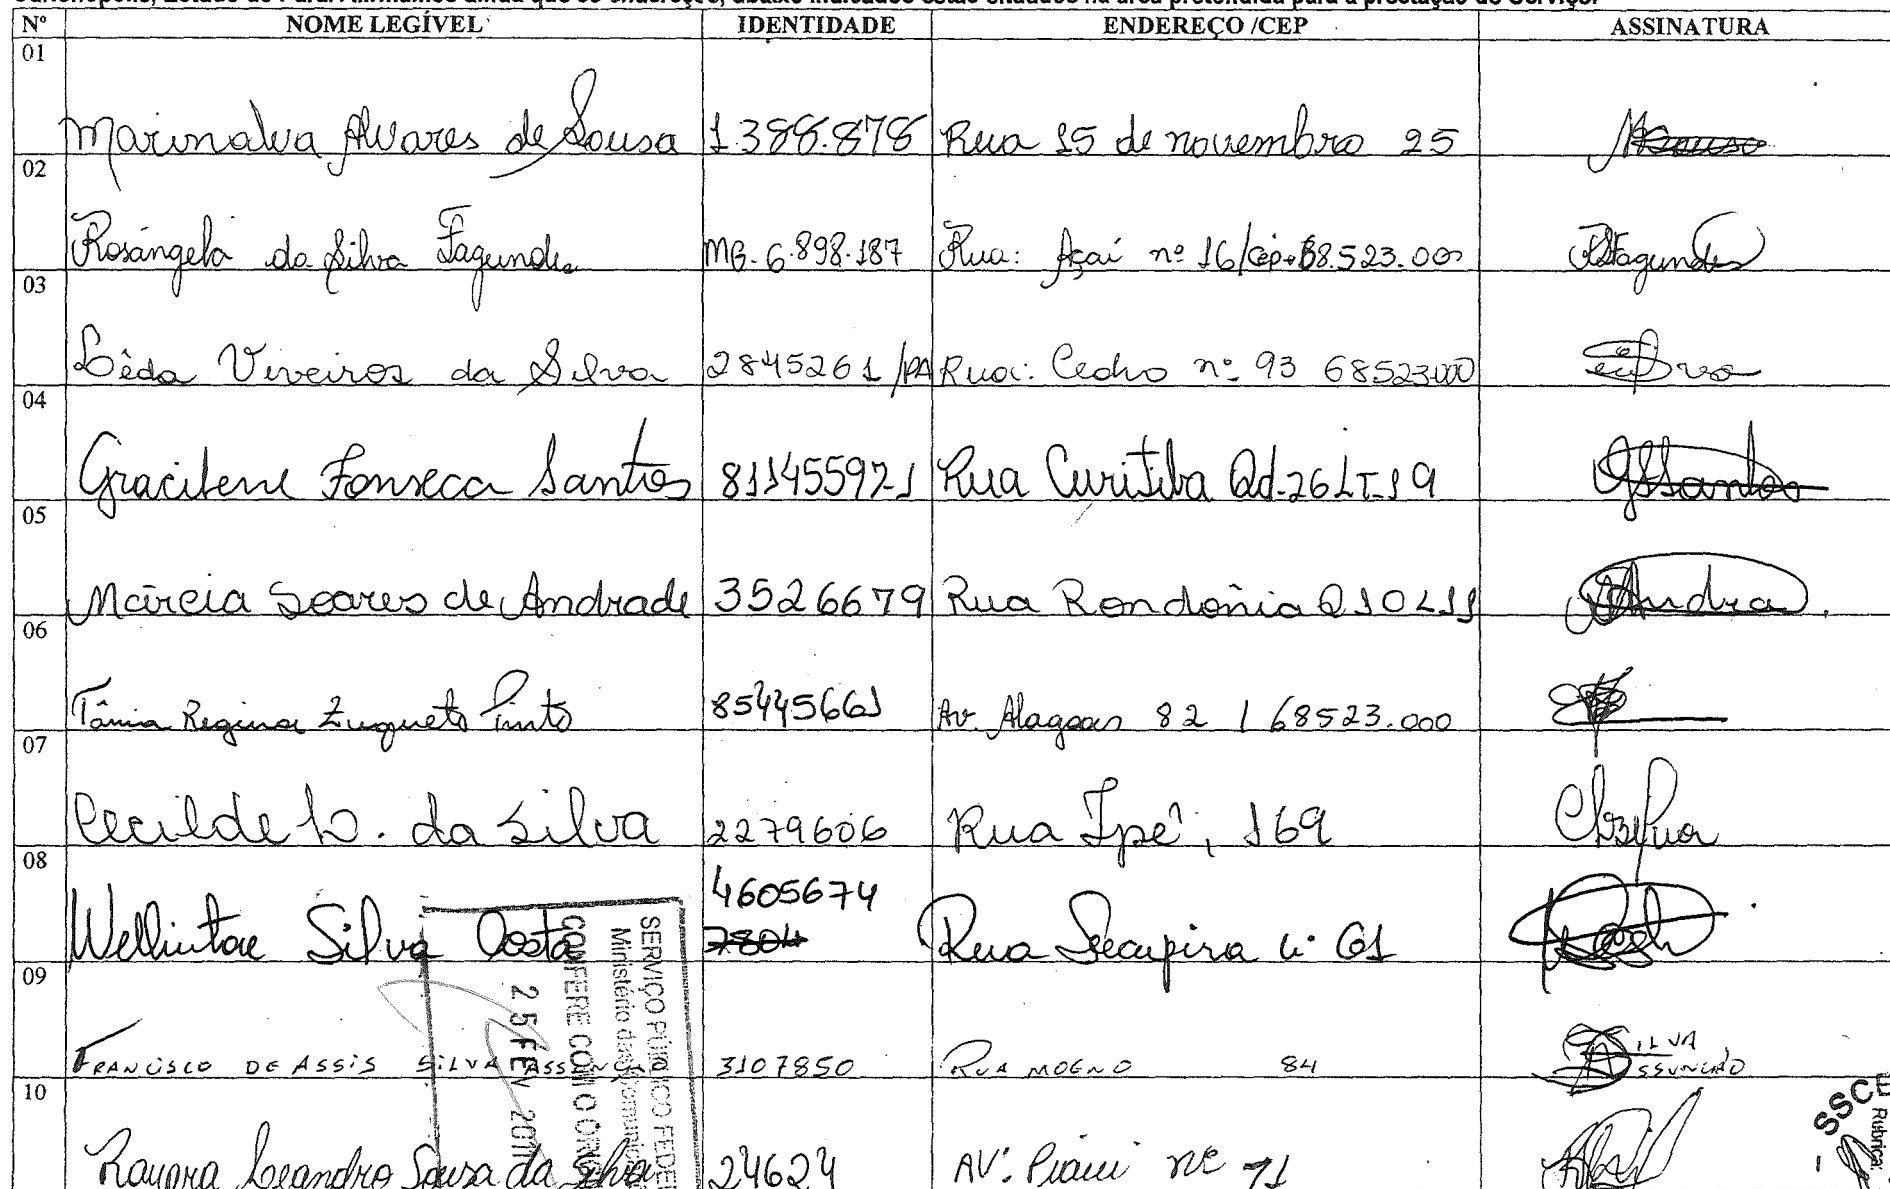 Nº NOME LEGÍVEL IDENTIDADE ENDEREÇO /CEP ASSINATURA
01 Marinalva Alvares de Sousa 1.388.878 Rua 15 de novembro 25
02 Rosângela da Silva Fagundes MG-6.898.187 Rua: Açaí nº 16/cep. 68.523.000 Fagundes
03 Lêda Viveiros da Silva 2845261/PA Rua: Cedro nº 93 68523000
04 Gracilene Fonseca Santos 81145597-1 Rua Curitiba Qd-26 LT-19 GSSantos
05 Márcia Soares de Andrade 3526679 Rua Rondônia Q10 L11 Andra
06 Tânia Regina Zuqueto Pinto 85445661 Av. Alagoas 82 / 68523.000
07 Cecilde D. da Silva 2279606 Rua Ipê, 169
08 4605674
Silva Costa 7804 Rua nº 61
09 FRANCISCO DE ASSIS SILVA 3107850 RUA MOGNO 84 SILVA
ASSUNÇÃO
10 Leandro Sousa da Silva 24624 AV: Piaui nº 71
SERVIÇO PÚBLICO FEDE
Ministério das Comunic
CONFERE COM O ORIG
25 FEV 2011
SSCE
Rubrica: